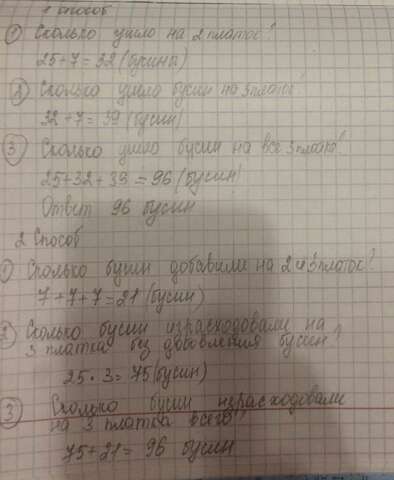 1 способ
1 Сколько ушло на 2 платок?
25+7=32 (бусины)
2 Сколько ушло бусин на 3 платок?
32+7=39 (бусин)
3 Сколько ушло бусин на все 3 платка?
25+32+39=96 (бусин)
Ответ 96 бусин
2 Способ
1 Сколько бусин добавили на 2 и 3 платок?
7+7+7=21 (бусин)
2 Сколько бусин израсходовали на
3 платка без добавления бусин?
25·3=75 (бусин)
3 Сколько бусин израсходовали
на 3 платка всего?
75+21=96 бусин